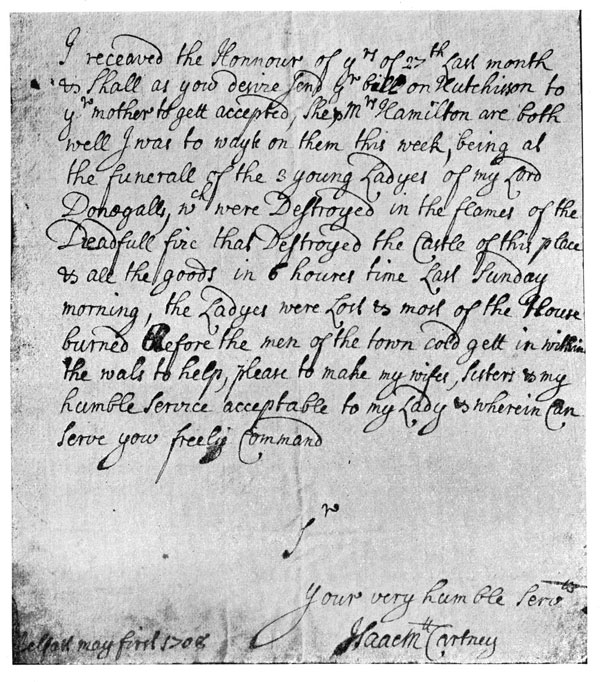 I receaved the Honnour of yrs of 27th Last month
& Shall as you desire send yr bill on Hutchisson to
yr mother to gett accepted, She & Mrs Hamilton are both
well I was to wayt on them this week, being at
the funerall of the 3 young Ladyes of my Lord
Donegalls, wch were Destroyed in the flames of the
Dreadfull fire that Destroyed the Castle of this place
& all the goods in 6 houres time Last Sunday
morning, the Ladyes were Lost & most of the House
burned Before the men of the town cold gett in within
the wals to help, please to make my wifes, sisters & my
humble service acceptable to my Lady & wherein I Can
serve yow freely Command
Sr
Your very humble Servts
Isaac Mtt Cartney
Belfast may first 1708